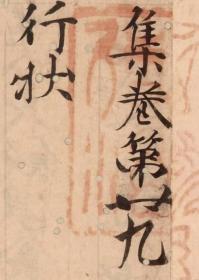 集巻第廿九
行状